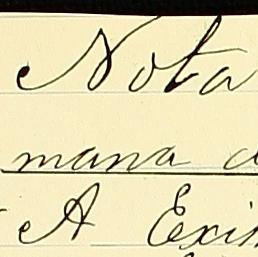 Nota
mana d
A Exi